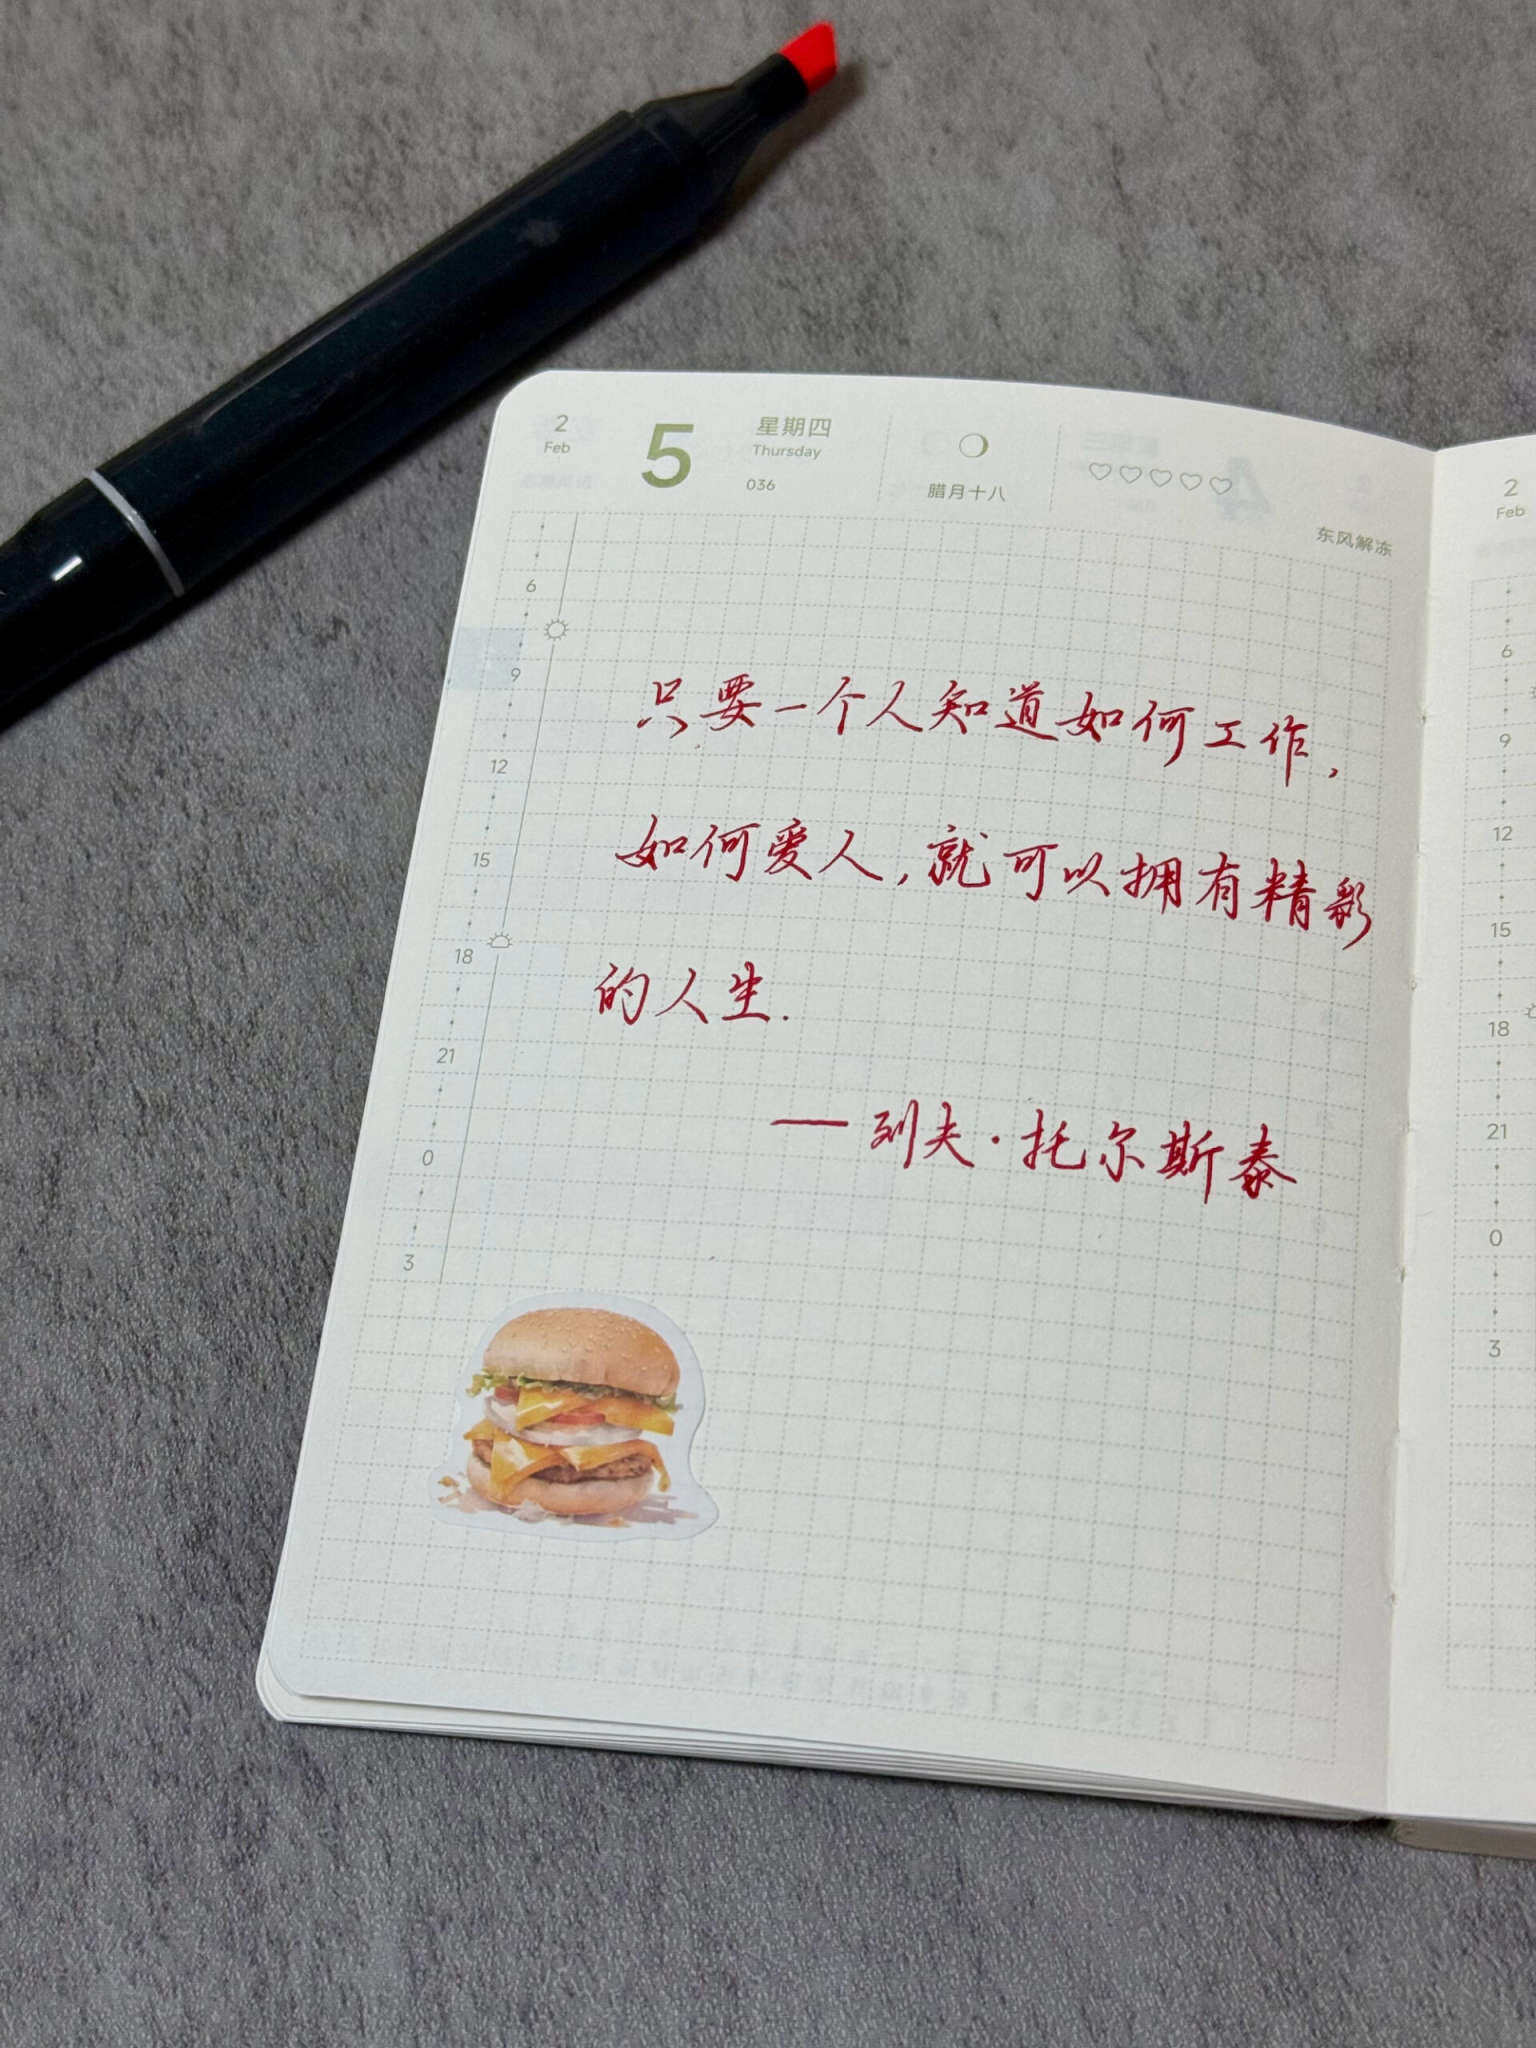 2
Feb
5
星期四
Thursday
036
腊月十八
东风解冻
6
9
12
15
18
21
0
3
只要一个人知道如何工作，
如何爱人，就可以拥有精彩
的人生.
— 列夫·托尔斯泰
2
Feb
6
9
12
15
18
21
0
3